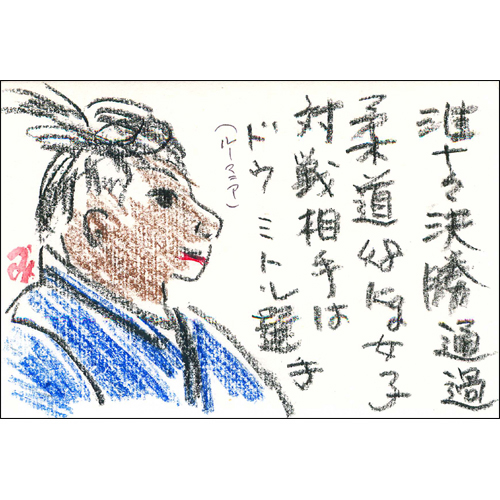 準々決勝通過
柔道48kg女子
対戦相手は
ドウミトル選手
(ルーマニア)
み